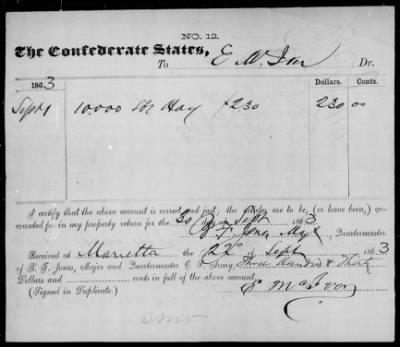 NO. 12.
The Confederate States,
To E M Dr.
1863 Dollars. Cents.
Sept 1 10,000 lbs Hay 230 230 00
I certify that the above account is correct and just; the articles are to be, (or have been,) ac-
counted for in my property return for the Sept 1863
B. F. Jones Maj & Quartermaster.
Received at Marietta the 22 of Sept 1863
of B. F. Jones, Major and Quartermaster C. S. Army, Hundred & Thirty
Dollars and cents in full of the above account.
(Signed in Duplicate.) E McIvor